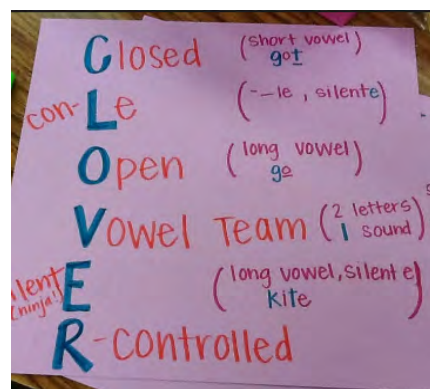 Closed (short vowel)
got
con-Le (--le, silente)
Open (long vowel)
go
Vowel Team (2 letters)
1 sound
E (long vowel, silent e)
(ninja!) kite
R-controlled